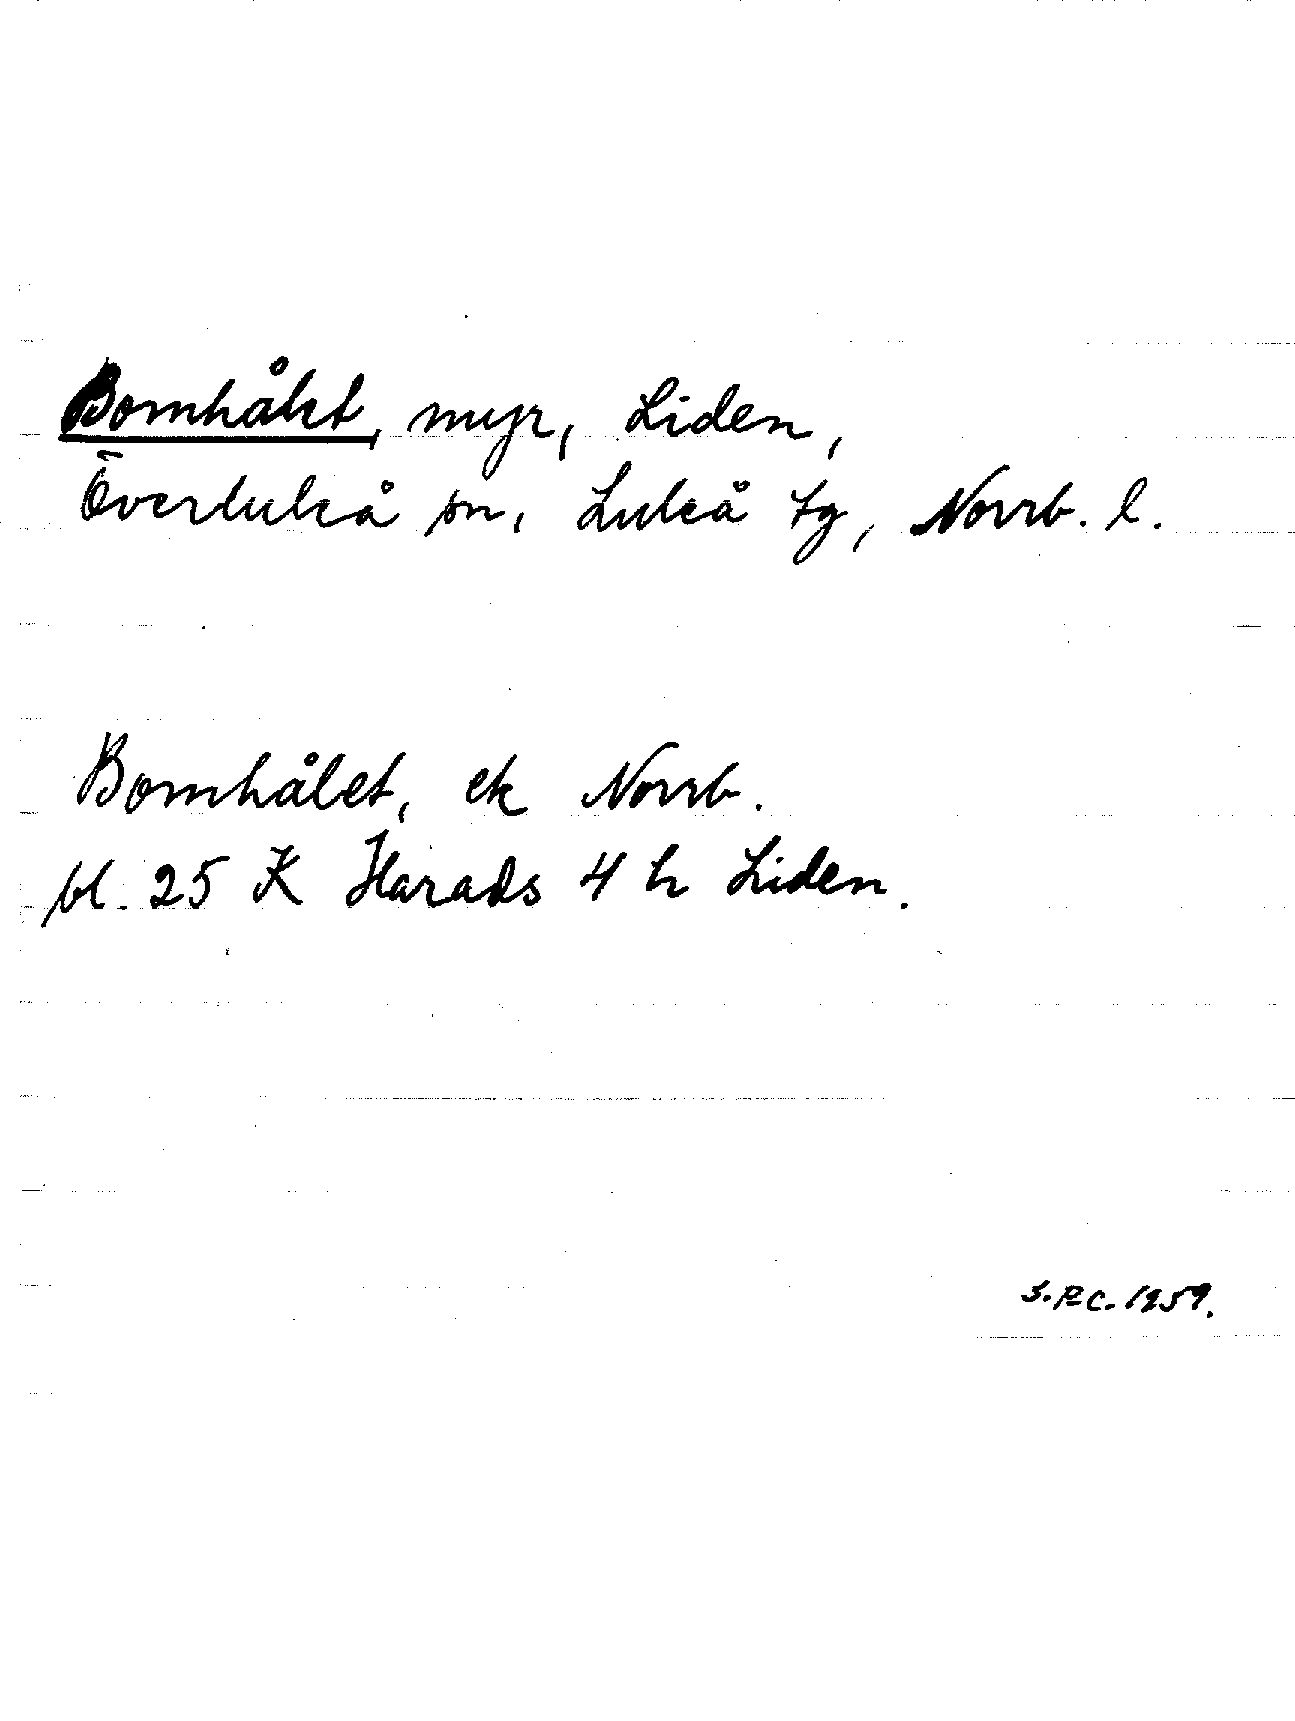 Bomhålet, myr, Liden,
Överluleå sn, Luleå tg, Norrb. l.
Bomhålet, ek Norrb.
bl. 25 K Harads 4 h Liden.
S.R.C. 1959.